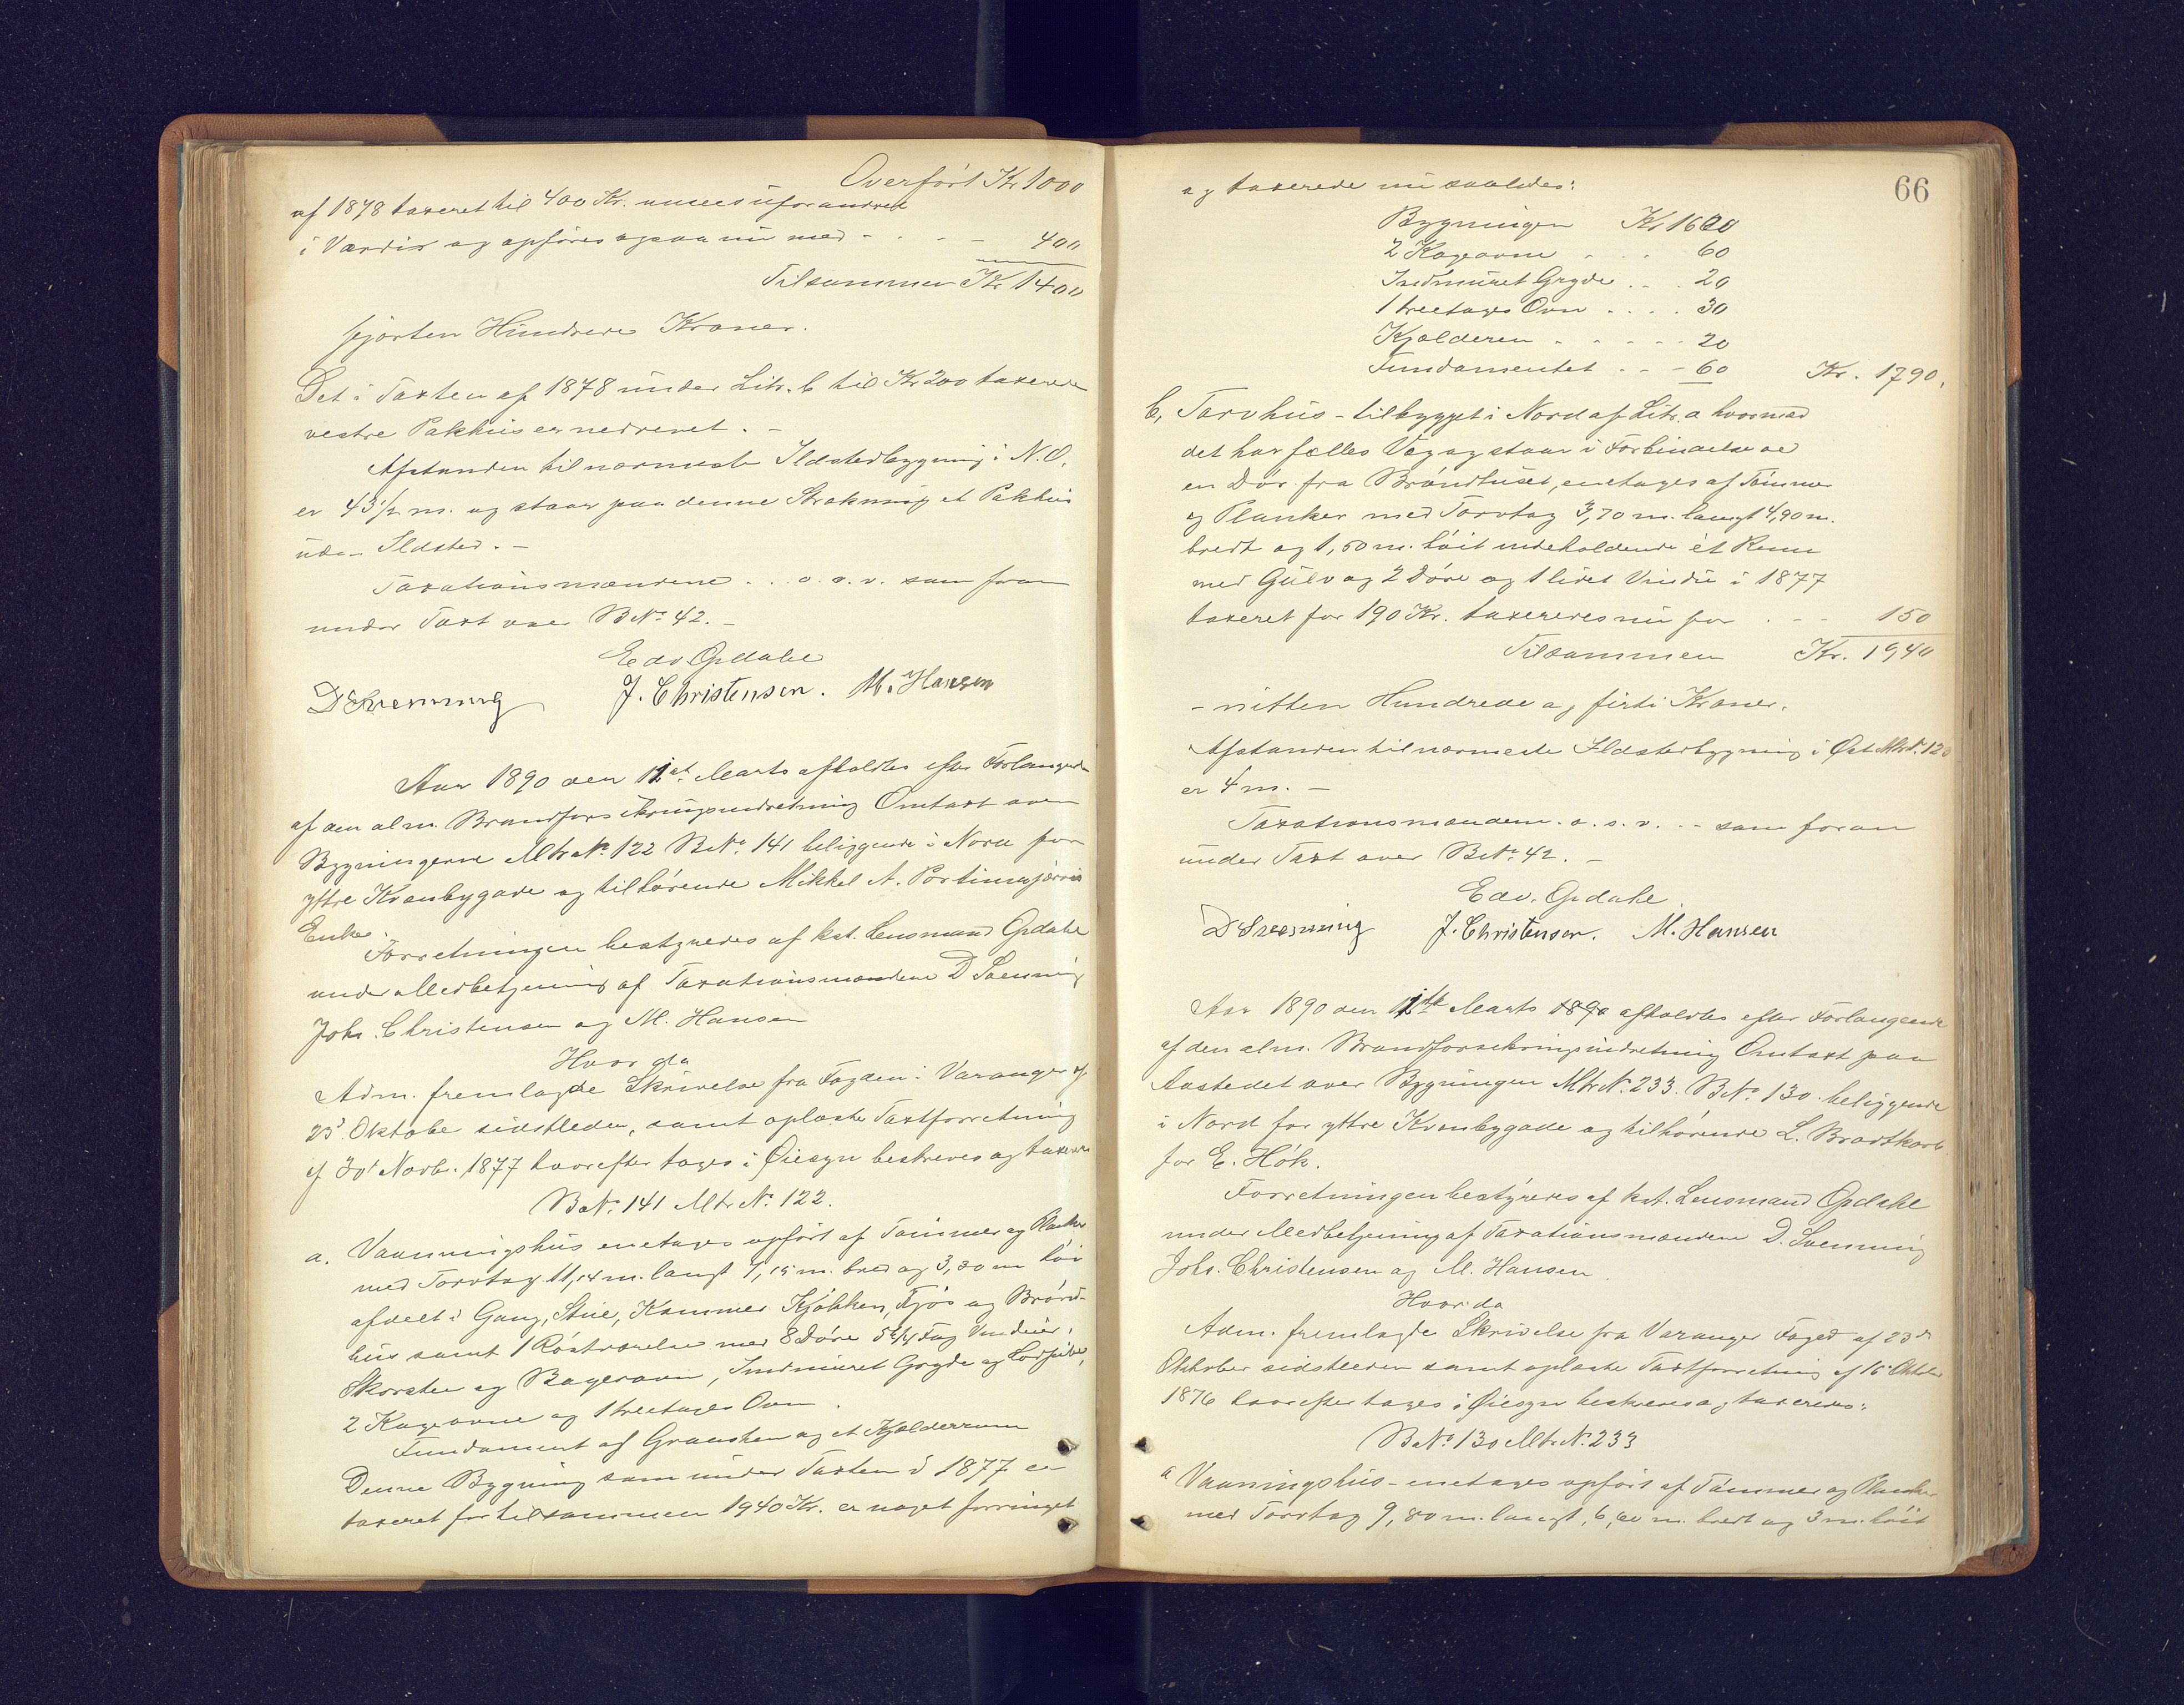 Overført Kr 1000
af 1878 taxeret til 400 Kr. ansees uforandret
i Værdie og opføres ogsaa nu med - - - - 400
Tilsammen Kr 1400
fjorten Hundrede Kroner.
Det i Taxten af 1878 under Litr. b til Kr 200 taxerede
vestre Pakhus er nedrevet. -
Afstanden til nærmeste Ildstedbygning i N.O.
er 43 1/2 m. og staar paa denne Strækning et Pakhus
uden Ildsted. -
Taxationsmændene . . o. s. v. som foran
under Taxt over B.No. 42. -
Edv. Opdahl
D Svenning J. Christensen. M. Hansen
Aar 1890 den 11te Marts afholdtes efter Forlangende
af den alm. Brandforsikringsindretning Omtaxt over
Bygningerne Mtr.No. 122 B.No. 141 beliggende i Nord for
yttre Kvænbygade og tilhørende Mikkel A. Portimojærvis
Enke.
Forretningen bestyredes af kst. Lensmand Opdahl
under Medbetjening af Taxationsmændene D Svenning
Johs. Christensen og M. Hansen
Hvor da
Adm. fremlagde Skrivelse fra Fogden i Varanger af
23' Oktober sidstleden, samt oplæste Taxtforretning
af 30' Novbr. 1877 hvorefter toges i Øiesyn beskreves og taxeredes
B.No. 141 Mtr.No. 122.
a. Vaaningshus enetages opført af Tømmer og Planker
med Torvtag 11,14 m. langt 7,15 m. bred og 3,80 m høi
afdelt i Gang, Stue, Kammer Kjøkken, Fjøs og Brønd-
hus samt 1 Røstværelse med 8 Døre 5 2/4 Fag Vinduer,
Skorsten og Bagerovn, Indmuret Gryde og Lodpibe,
2 Kogeovne og 1 treetages Ovn.
Fundament af Graasten og et Kjælderrum
Denne Bygning som under Taxten i 1877 er
taxeret for tilsammen 1940 Kr. er noget forringet
66
og taxerede nu saaledes:
Bygningen Kr 1600
2 Kogeovne . . . 60
Indmuret Gryde . . . 20
1 treetages Ovn . . . . 30
Kjælderen - - - - - 20
Fundamentet - - - 60 Kr. 1790,
b, Torvhus - tilbygget i Nord af Litr. a hvormed
det har fælles Væg og staar i Forbindelse ved
en Dør fra Brøndhuset, enetages af Tømmer
og Planker med Torvtag 3,70 m. langt 4,90 m.
bredt og 1,50 m. høit indeholdende ét Rum
med Gulv og 2 Døre og 1 lidet Vindu i 1877
taxeret for 190 Kr. taxeredes nu for . - - 150
Tilsammen Kr. 1940
- nitten Hundrede og firti Kroner.
Afstanden til nærmeste Ildstedbygning i Øst Mtr.No. 120
er 4 m. -
Taxationsmændene. o. s. v. - - som foran
under Taxt over B.No. 42. -
Edv. Opdahl.
D Svenning J. Christensen. M. Hansen
Aar 1890 den 11te Marts 1890 afholdtes efter Forlangende
af den alm. Brandforsikringsindretning Omtaxt paa
Aastedet over Bygningen Mtr.No. 233. B.No. 130 beliggende
i Nord for yttre Kvænbygade og tilhørende L. Brodtkorb
for E. Høk.
Forretningen bestyredes af kst. Lensmand Opdahl
under Medbetjening af Taxationsmændene D. Svenning
Johs. Christensen og M. Hansen.
Hvor da
Adm. fremlagde Skrivelse fra Varanger Foged af 23de
Oktober sidstleden samt oplæste Taxtforretning af 16 Oktober
1876 hvorefter toges i Øiesyn beskreves og taxeredes:
B.No. 130 Mtr.No. 233
a Vaaningshus - enetages opført af Tømmer og Planker
med Torvtag 9,80 m. langt, 6,60 m. bredt og 3 m. høit